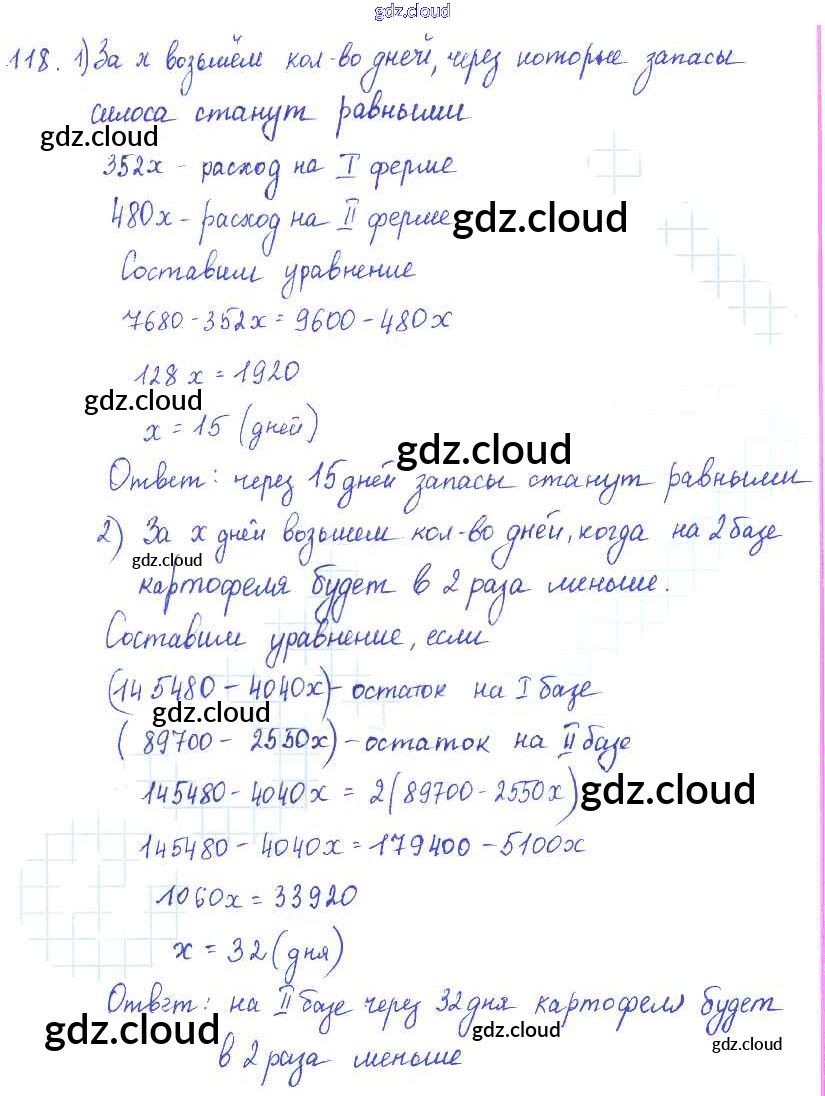 gdz.cloud
118. 1) За x возьмём кол-во дней, через которые запасы
силоса станут равными
gdz.cloud
352x - расход на I ферме
480x - расход на II ферме gdz.cloud
Составим уравнение
7680 - 352x = 9600 - 480x
128x = 1920
gdz.cloud
x = 15 (дней)
gdz.cloud
Ответ: через 15 дней запасы станут равными
2) За x дней возьмем кол-во дней, когда на 2 базе
gdz.cloud
картофеля будет в 2 раза меньше.
Составим уравнение, если
(145480 - 4040x) - остаток на I базе
gdz.cloud
(89700 - 2550x) - остаток на II базе
145480 - 4040x = 2(89700 - 2550x) gdz.cloud
145480 - 4040x = 179400 - 5100x
1060x = 33920
x = 32 (дня)
Ответ: на II базе через 32 дня картофеля будет
gdz.cloud gdz.cloud gdz.cloud
в 2 раза меньше